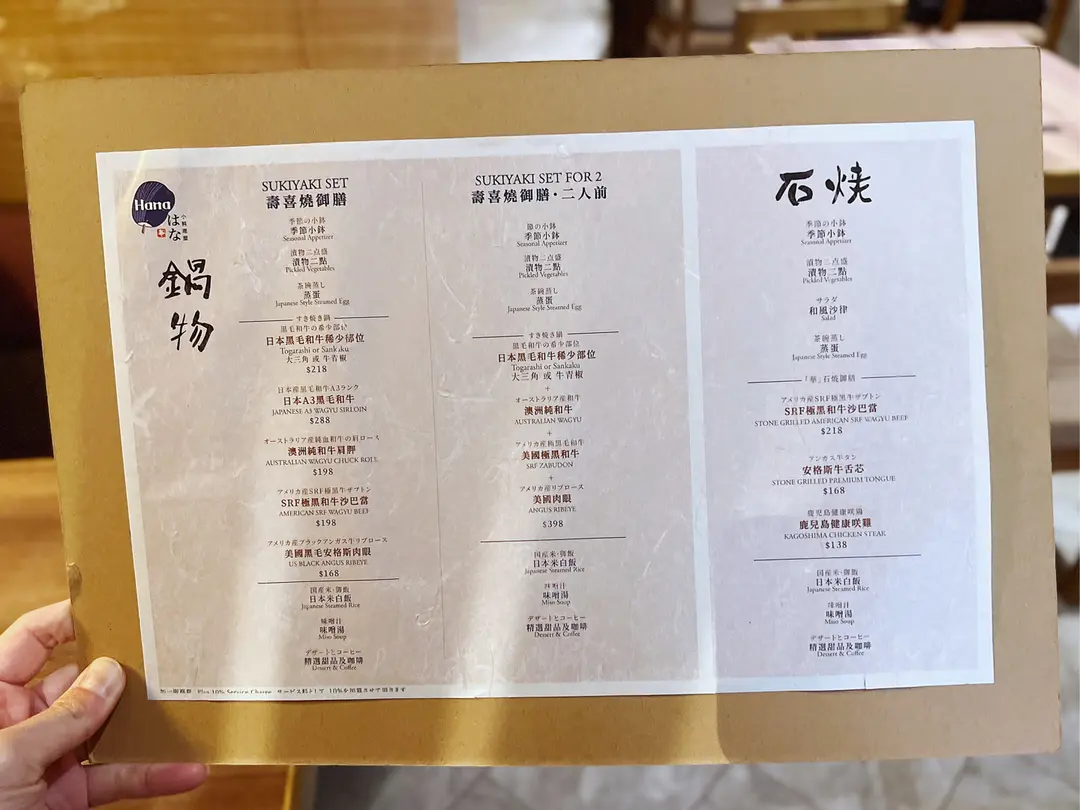 Hana
はな
小料理屋
鍋物
SUKIYAKI SET
壽喜燒御膳
季節の小鉢
季節小鉢
Seasonal Appetizer
漬物二点盛
漬物二點
Pickled Vegetables
茶碗蒸し
蒸蛋
Japanese Style Steamed Egg
すき焼き鍋
黒毛和牛の希少部位
日本黑毛和牛稀少部位
Togarashi or Sankaku
大三角 或 牛青椒
$218
日本産黒毛和牛A3ランク
日本A3黑毛和牛
JAPANESE A3 WAGYU SIRLOIN
$288
オーストラリア産純血和牛の肩ロース
澳洲純和牛肩胛
AUSTRALIAN WAGYU CHUCK ROLL
$198
アメリカ産SRF極黒牛ザブトン
SRF極黑和牛沙巴當
AMERICAN SRF WAGYU BEEF
$198
アメリカ産ブラックアンガス牛リブロース
美國黑毛安格斯肉眼
US BLACK ANGUS RIBEYE
$168
国産米·御飯
日本米白飯
Japanese Steamed Rice
味噌汁
味噌湯
Miso Soup
デザートとコーヒー
精選甜品及咖啡
Dessert & Coffee
SUKIYAKI SET FOR 2
壽喜燒御膳·二人前
節の小鉢
季節小鉢
Seasonal Appetizer
漬物二点盛
漬物二點
Pickled Vegetables
茶碗蒸し
蒸蛋
Japanese Style Steamed Egg
すき焼き鍋
黒毛和牛の希少部位
日本黑毛和牛稀少部位
Togarashi or Sankaku
大三角 或 牛青椒
+
オーストラリア産和牛
澳洲純和牛
AUSTRALIAN WAGYU
+
アメリカ産極黒毛和牛
美國極黑和牛
SRF ZABUDON
+
アメリカ産リブロース
美國肉眼
ANGUS RIBEYE
$398
国産米·御飯
日本米白飯
Japanese Steamed Rice
味噌汁
味噌湯
Miso Soup
デザートとコーヒー
精選甜品及咖啡
Dessert & Coffee
石焼
季節の小鉢
季節小鉢
Seasonal Appetizer
漬物二点盛
漬物二點
Pickled Vegetables
サラダ
和風沙律
Salad
茶碗蒸し
蒸蛋
Japanese Style Steamed Egg
「華」石焼御膳
アメリカ産SRF極黒牛ザブトン
SRF極黑和牛沙巴當
STONE GRILLED AMERICAN SRF WAGYU BEEF
$218
アンガス牛タン
安格斯牛舌芯
STONE GRILLED PREMIUM TONGUE
$168
鹿児島健康咲鶏
鹿兒島健康咲雞
KAGOSHIMA CHICKEN STEAK
$138
国産米·御飯
日本米白飯
Japanese Steamed Rice
味噌汁
味噌湯
Miso Soup
デザートとコーヒー
精選甜品及咖啡
Dessert & Coffee
加一服務費 Plus 10% Service Charge サービス料として 10%を加算させて頂きます